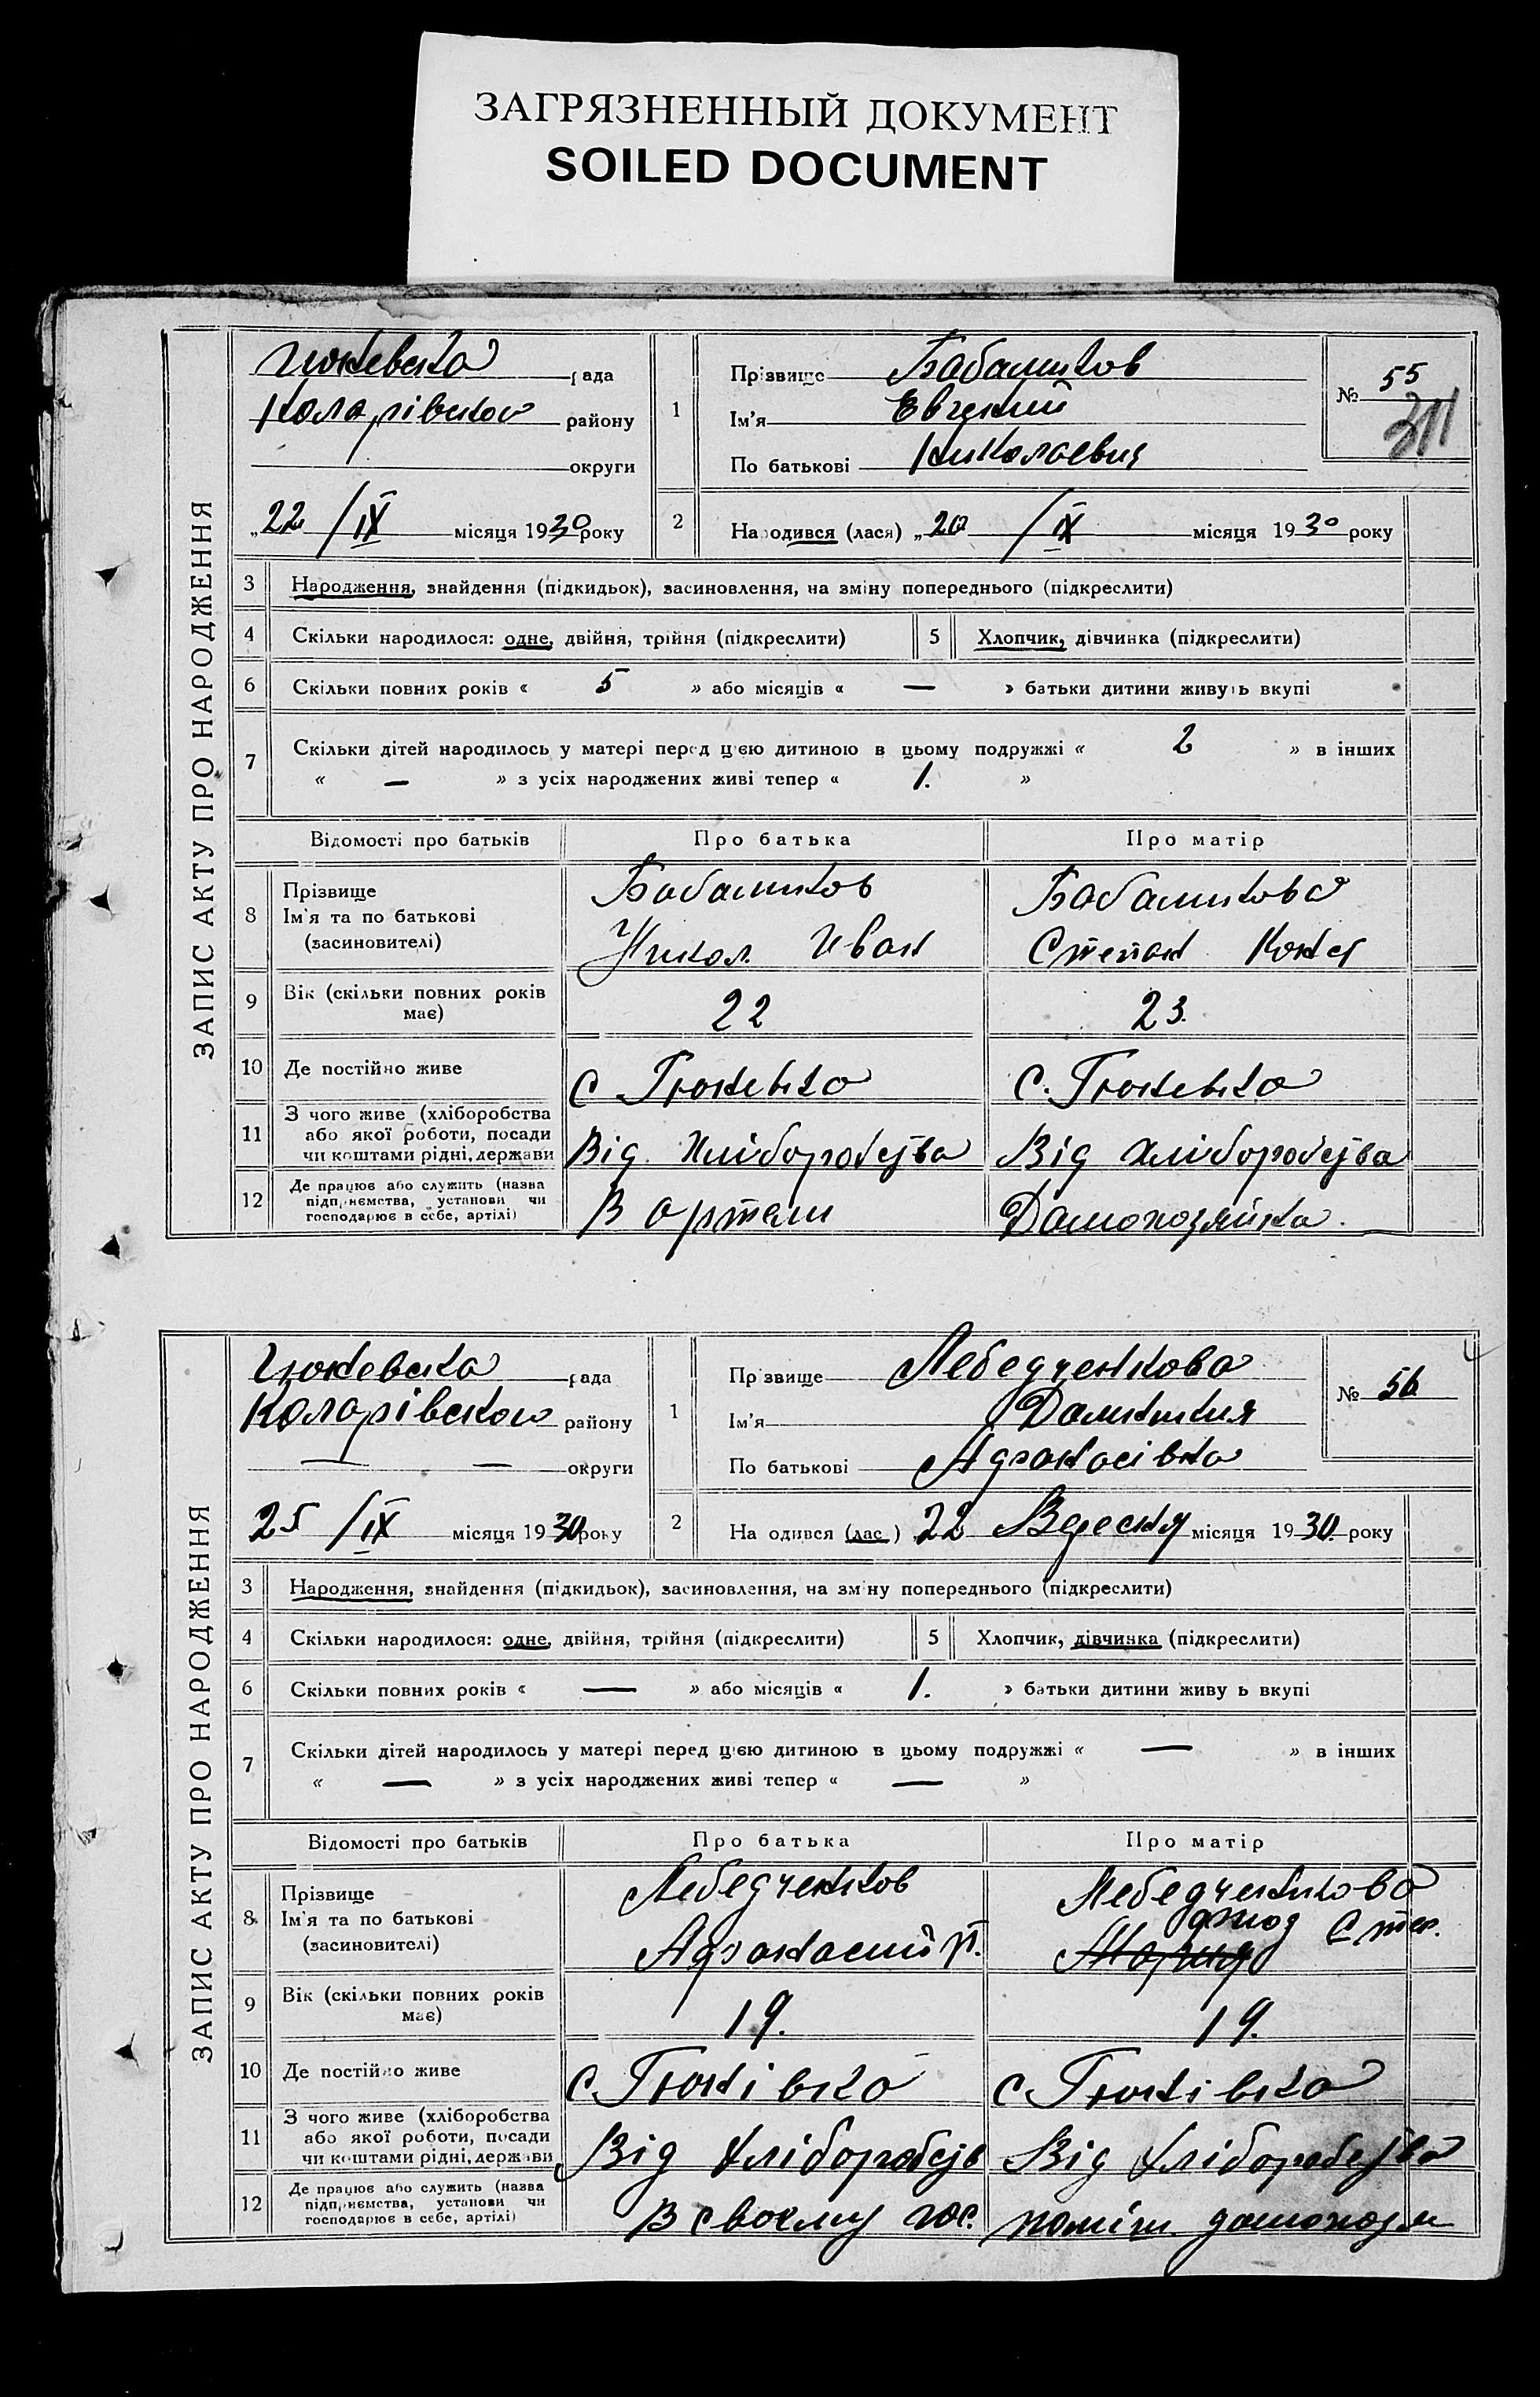 ЗАГРЯЗНЕННЫЙ ДОКУМЕНТ
SOILED DOCUMENT
ЗАПИС АКТУ ПРО НАРОДЖЕННЯ
Гюневска рада
Коларівсков району
округи
„22 /IX місяця 1930 року
1
Прізвище Бабашков
Ім'я Евгений
По батькові Николаевич
№ 55
311
2 Народився (лася) „20 /IX місяця 1930 року
3 Народження, знайдення (підкидьок), засиновлення, на зміну попереднього (підкреслити)
4 Скільки народилося: одне, двійня, трійня (підкреслити) 5 Хлопчик, дівчинка (підкреслити)
6 Скільки повних років « 5 » або місяців « — » батьки дитини живуть вкупі
7 Скільки дітей народилось у матері перед цією дитиною в цьому подружжі « 2 » в інших
« — » з усіх народжених живі тепер « 1. »
Відомості про батьків Про батька Про матір
8 Прізвище
Ім'я та по батькові
(засиновителі)
Бабашков
Никол. Иван
Бабашкова
Степан
9 Вік (скільки повних років має) 22 23.
10 Де постійно живе с Гюневка с. Гюневка
11 З чого живе (хліборобства
або якої роботи, посади
чи коштами рідні, держави
Від Хліборобства Від Хліборобства
12 Де працює або служить (назва
підприємства, установи чи
господарює в себе, артілі)
В артели Домохозяйка.
ЗАПИС АКТУ ПРО НАРОДЖЕННЯ
Гюневска рада
Коларівсков району
— — округи
25 /IX місяця 1930 року
1
Прізвище Лебедченкова
Ім'я Домникия
По батькові Афанасівна
№ 56
2 Народився (лася) 22 Вересня місяця 1930. року
3 Народження, знайдення (підкидьок), засиновлення, на зміну попереднього (підкреслити)
4 Скільки народилося: одне, двійня, трійня (підкреслити) 5 Хлопчик, дівчинка (підкреслити)
6 Скільки повних років « — » або місяців « 1. » батьки дитини живуть вкупі
7 Скільки дітей народилось у матері перед цією дитиною в цьому подружжі « — » в інших
« — » з усіх народжених живі тепер « — »
Відомості про батьків Про батька Про матір
8 Прізвище
Ім'я та по батькові
(засиновителі)
Лебедченков
Афанасий
Лебедченкова
Стеф.
Мария
9 Вік (скільки повних років має) 19. 19.
10 Де постійно живе с. Гюнівка с. Гюнівка
11 З чого живе (хліборобства
або якої роботи, посади
чи коштами рідні, держави
Від Хліборобств Від Хліборобства
12 Де працює або служить (назва
підприємства, установи чи
господарює в себе, артілі)
В своему гос. поміш. домохозя